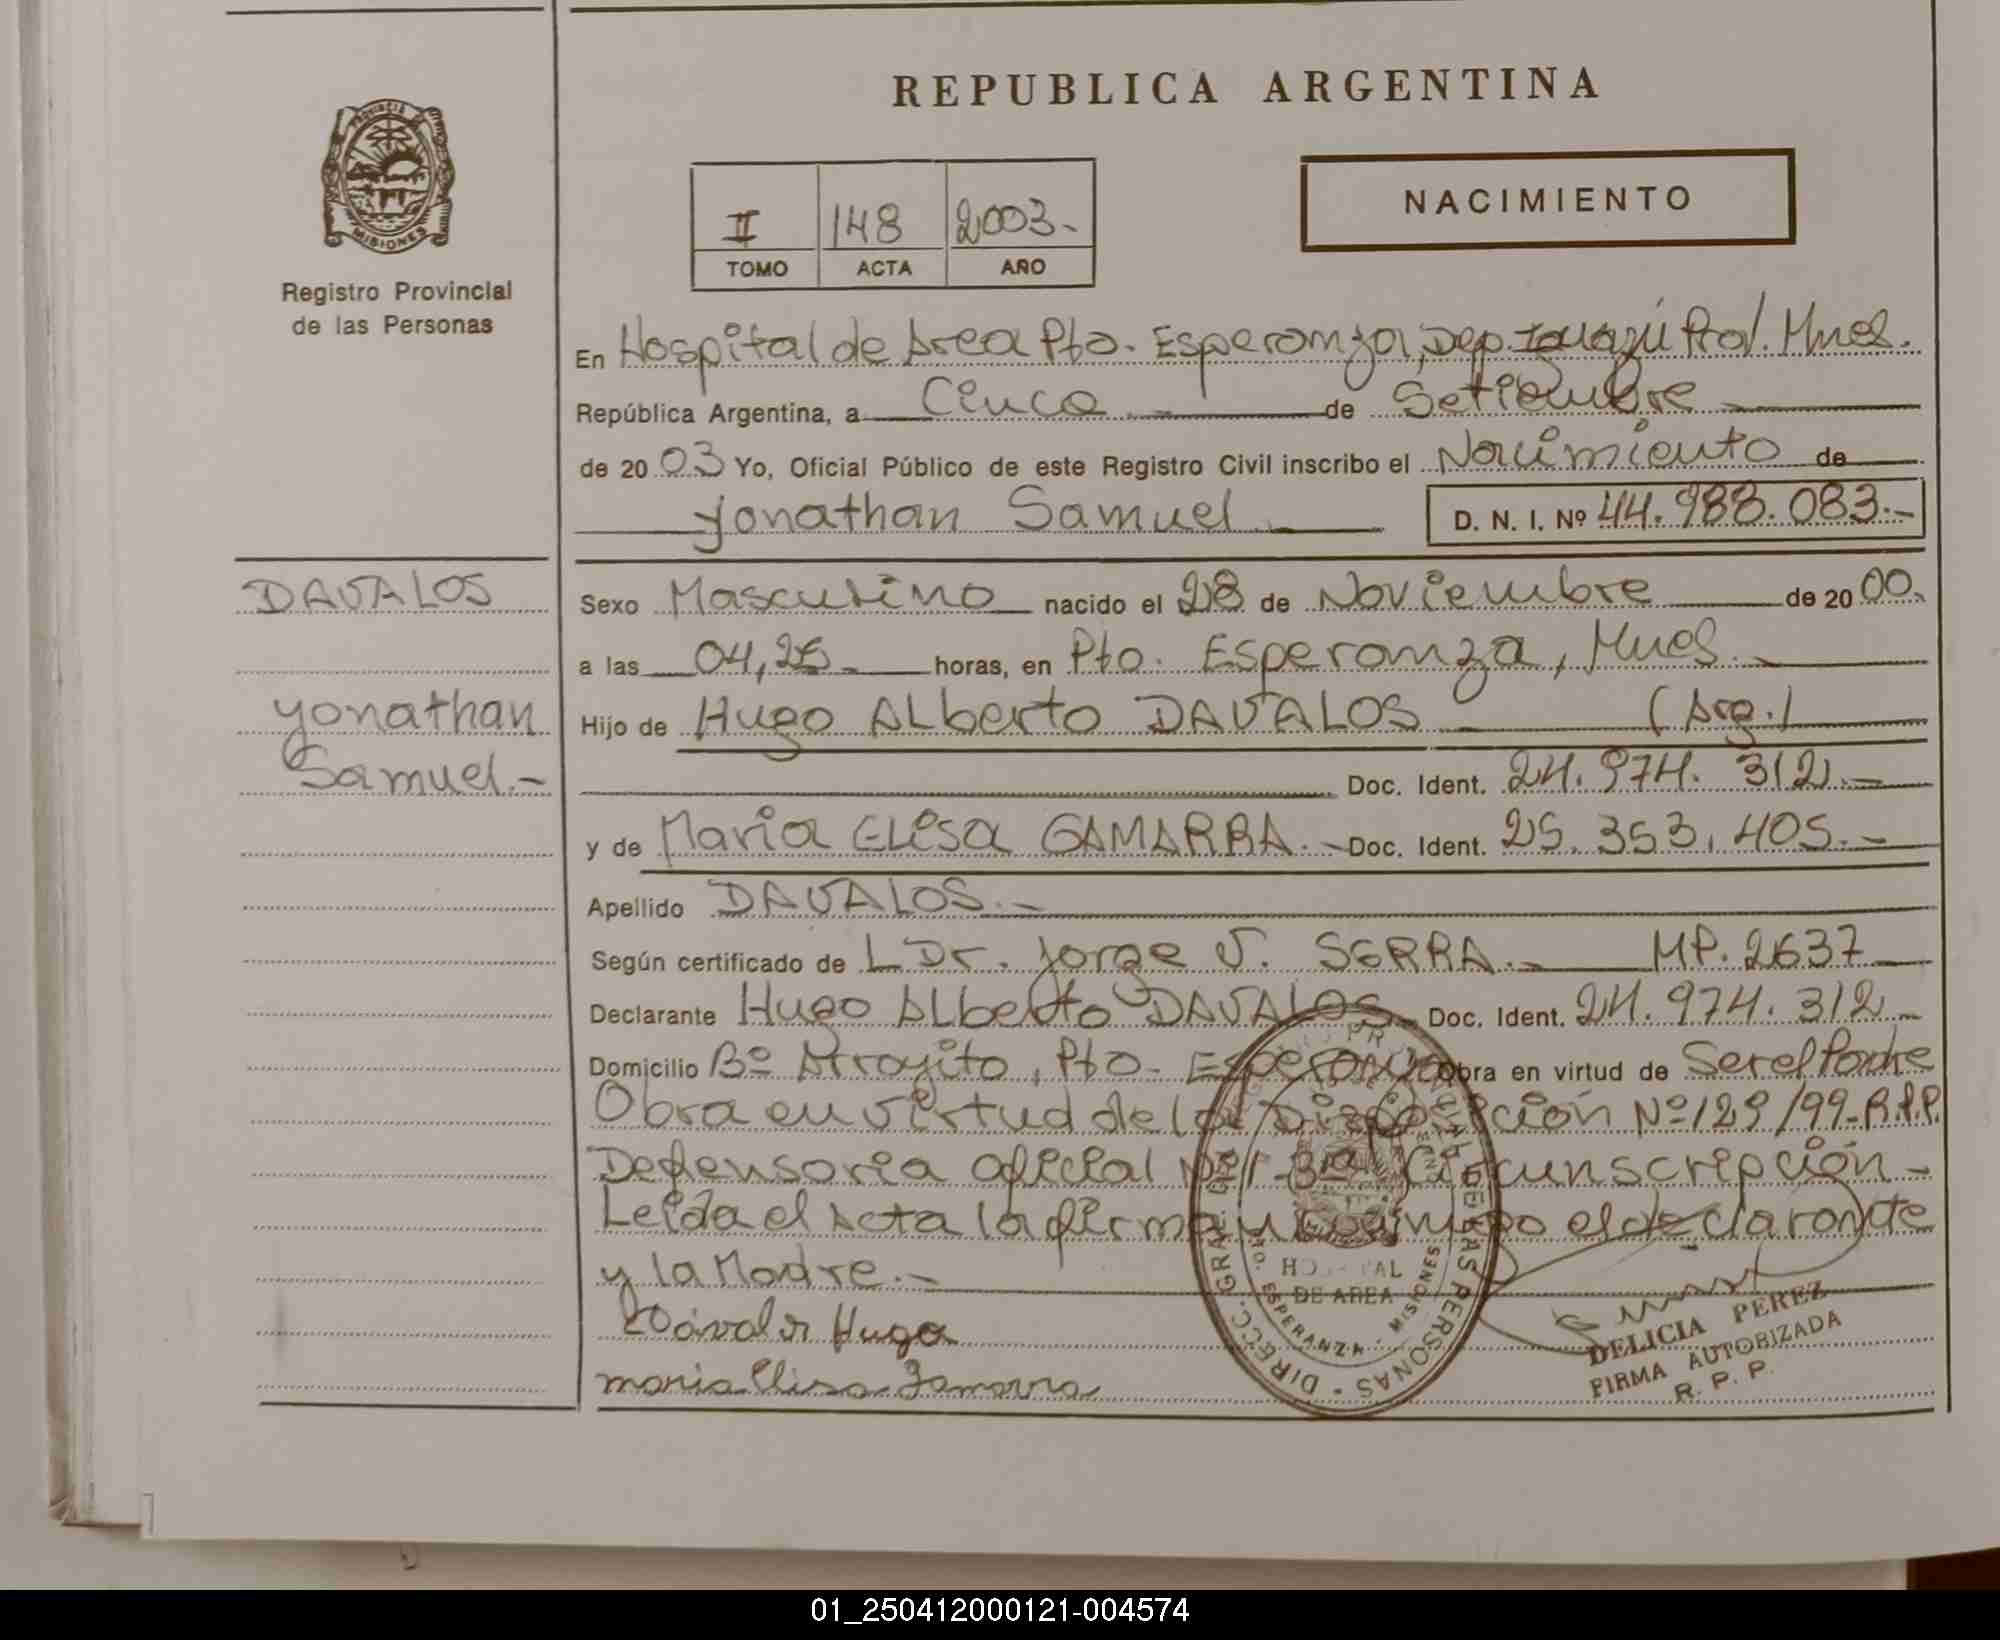 REPUBLICA ARGENTINA
PROVINCIA DE
MISIONES
Registro Provincial
de las Personas
NACIMIENTO
II 148 2003.-
TOMO ACTA AÑO
En Hospital de Area Pto. Esperanza, Dep. Iguazú Prov. Mnes.
República Argentina, a Cinco de Setiembre
de 2003 Yo, Oficial Público de este Registro Civil inscribo el Nacimiento de
Yonathan Samuel D. N. I. Nº 44.988.083.-
DAVALOS
Yonathan
Samuel.-
Sexo Masculino nacido el 28 de Noviembre de 2000.
a las 04,25 horas, en Pto. Esperanza, Mnes.
Hijo de Hugo Alberto DAVALOS (Arg.)
Doc. Ident. 24.974.312.-
y de Maria Elisa GAMARRA.- Doc. Ident. 25.353.405.-
Apellido DAVALOS.-
Según certificado de L Dr. Jorge V. SERRA.- MP. 2637
Declarante Hugo Alberto DAVALOS Doc. Ident. 24.974.312.-
Domicilio Bº Arroyito, Pto. Esperanza Obra en virtud de Ser el Padre
Obra en virtud de la Disposición Nº 129/99-R.P.P.
Defensoria oficial Nº 1-3ra Circunscripción.-
Leida el Acta la firma y conmigo el declarante
y la Madre.-
Dávalos Hugo
maria Elisa Gamarra
HOSPITAL
DE AREA
PTO. ESPERANZA - MISIONES
DIRECC. GRAL. DE LAS PERSONAS
DELICIA PEREZ
FIRMA AUTORIZADA
R. P. P.
01_250412000121-004574